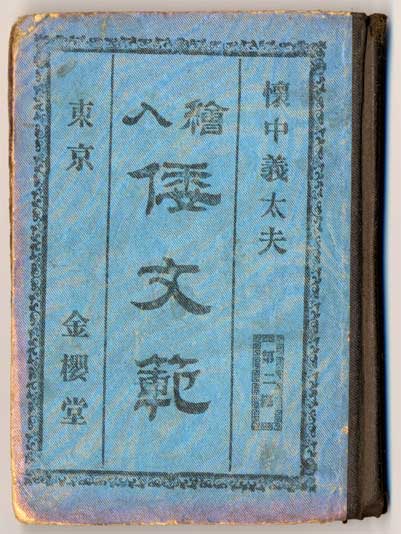 懷中義太夫
第二編
繪入
倭文範
東京 金櫻堂